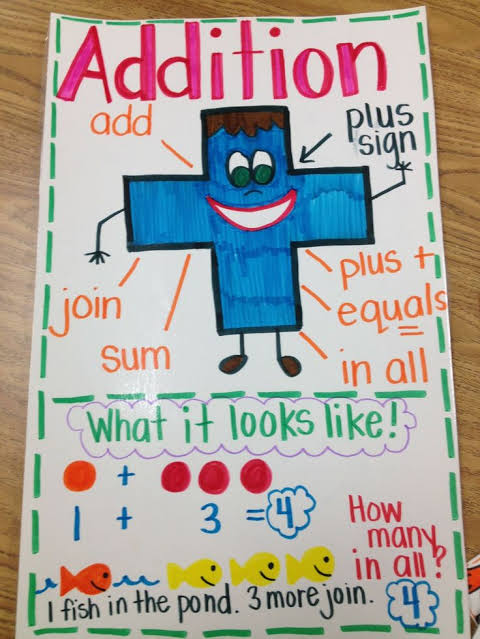 Addition
add
plus
sign
join
sum
plus +
equals
=
in all
What it looks like!
+
1 + 3 = 4
How
many
in all?
1 fish in the pond. 3 more join.
4